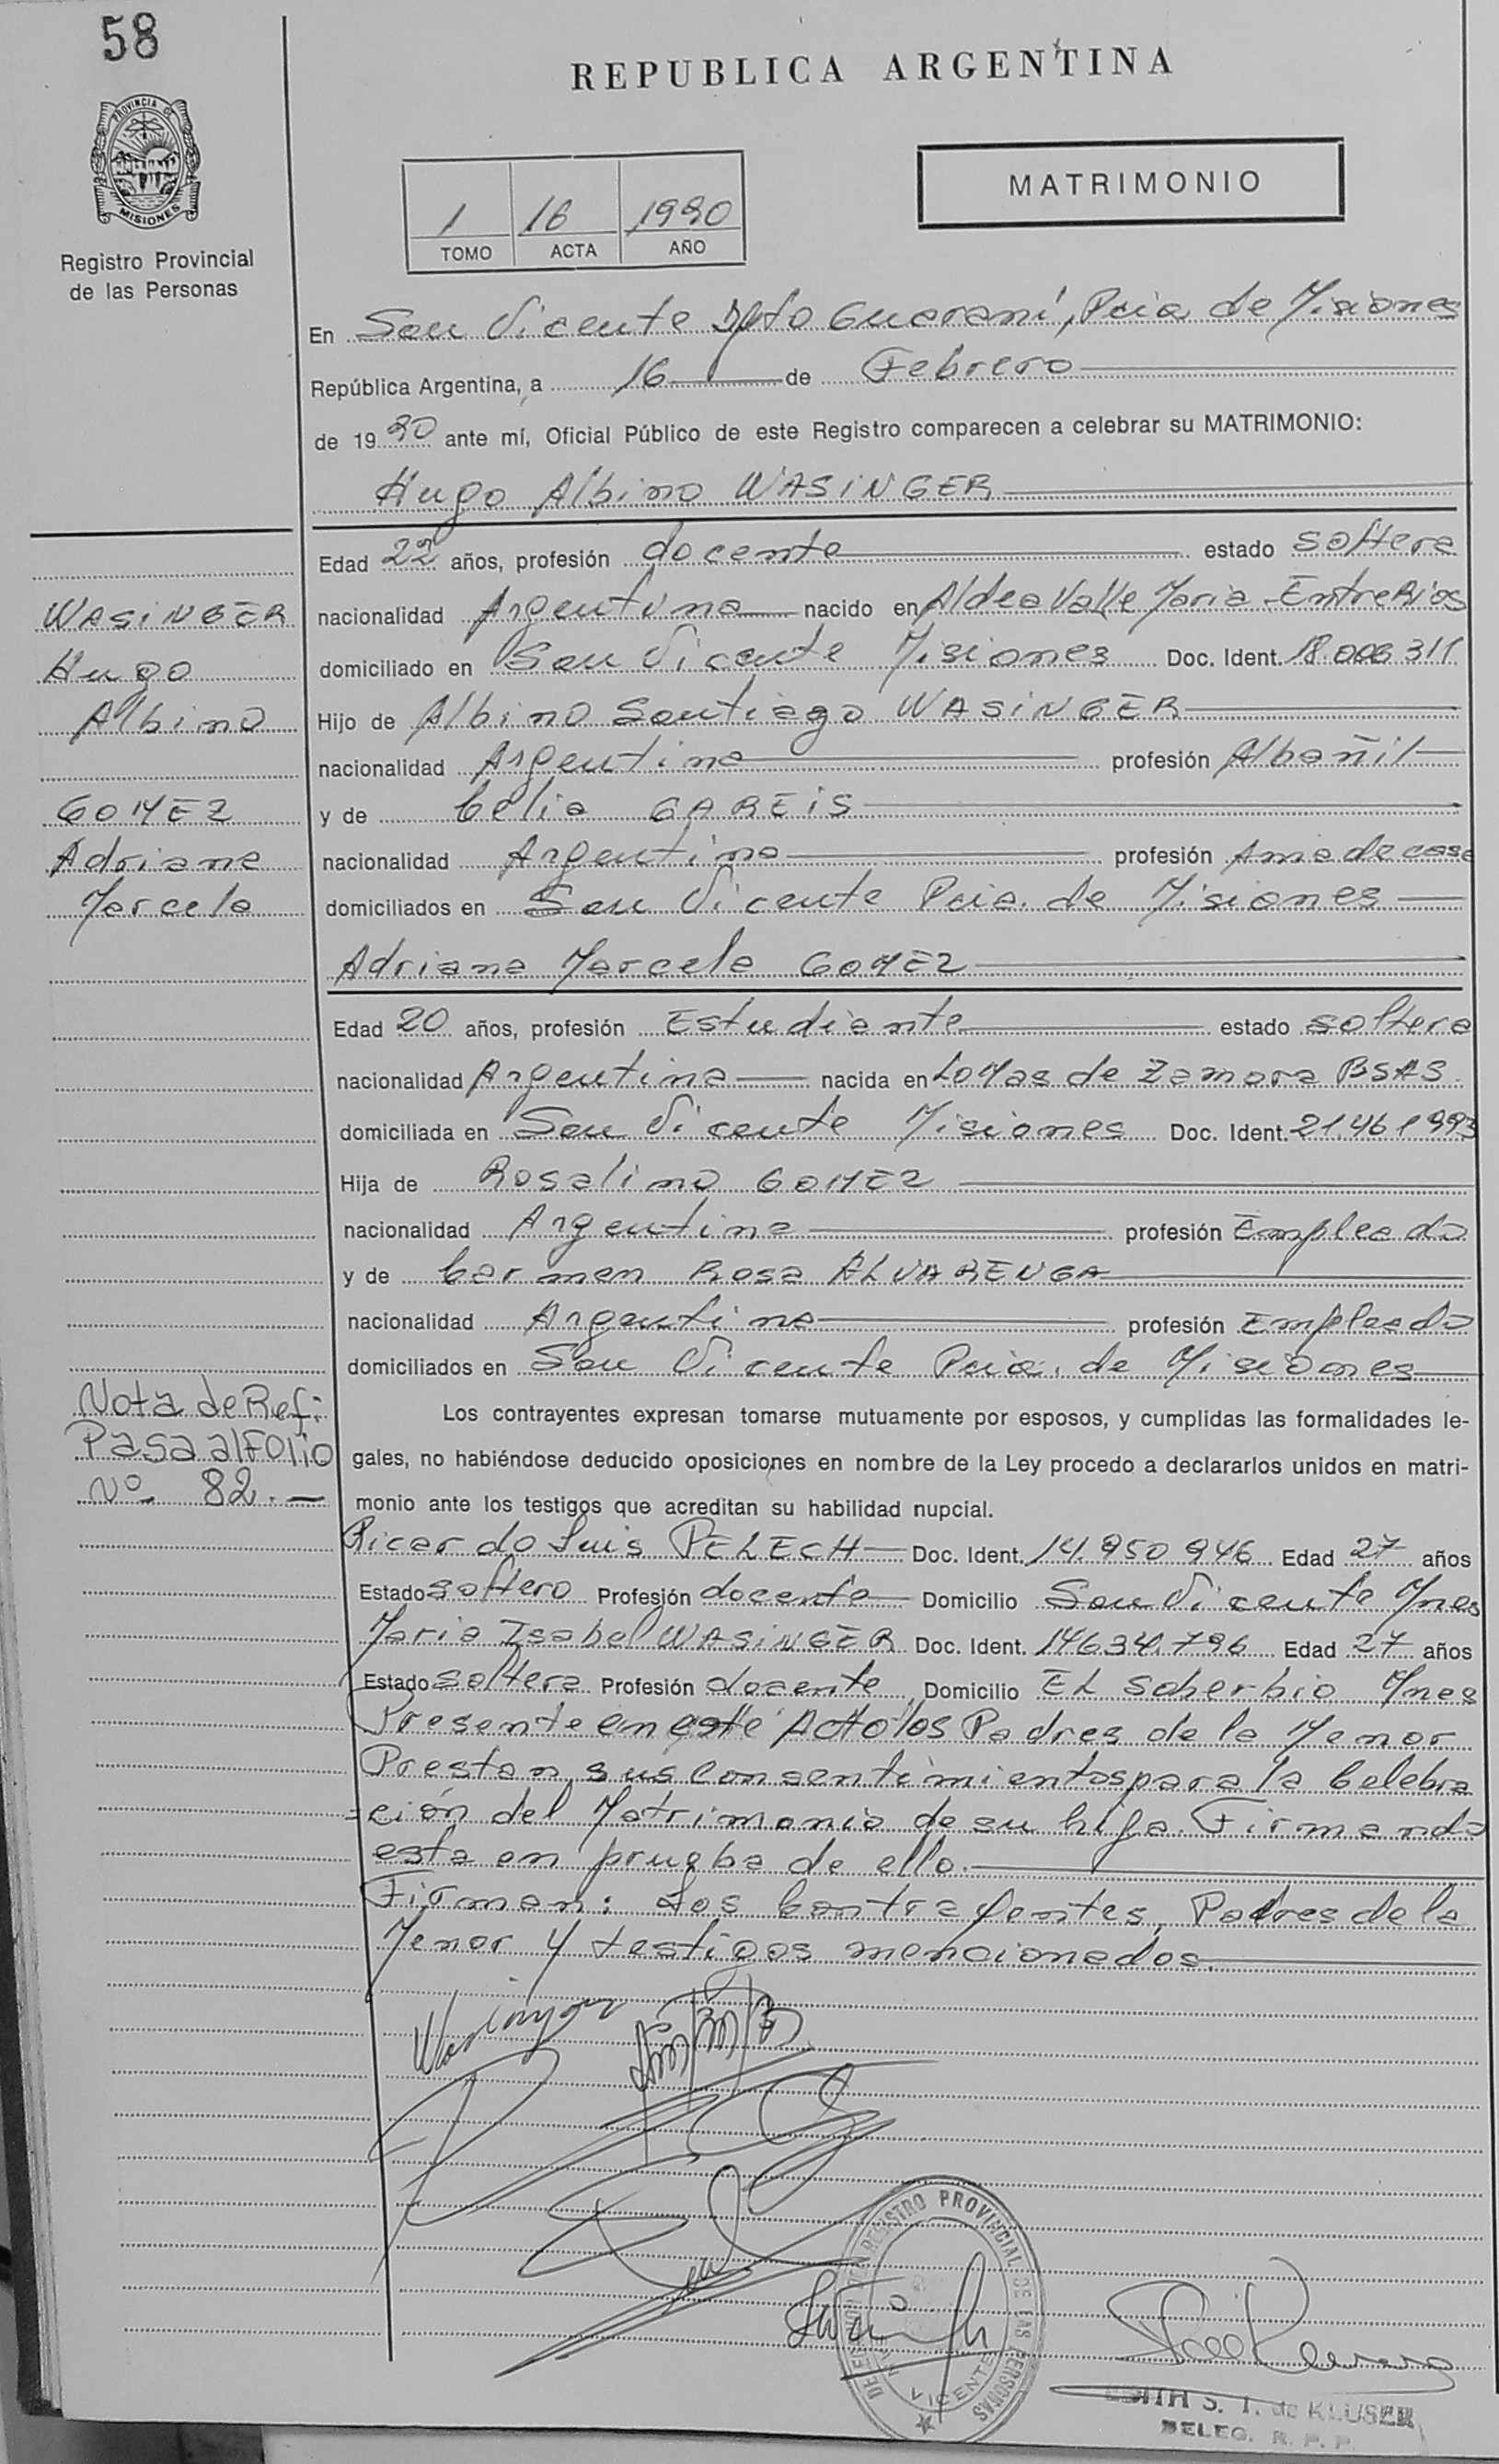 58
REPUBLICA ARGENTINA
PROVINCIA DE
MISIONES
Registro Provincial
de las Personas
1 16 1990
TOMO ACTA AÑO
MATRIMONIO
En San Vicente Dpto Guaraní, Pcia de Misiones
República Argentina, a 16 de Febrero
de 1990 ante mí, Oficial Público de este Registro comparecen a celebrar su MATRIMONIO:
Hugo Albino WASINGER
Edad 22 años, profesión docente estado soltero
nacionalidad Argentina nacido en Aldea Valle Maria - Entre Rios
domiciliado en San Vicente Misiones Doc. Ident. 18.006 311
Hijo de Albino Santiago WASINGER
nacionalidad Argentina profesión Albañil
y de Celia GAREIS
nacionalidad Argentina profesión Ama de casa
domiciliados en San Vicente Pcia. de Misiones
Adriana Marcela GOMEZ
Edad 20 años, profesión Estudiante estado soltera
nacionalidad Argentina nacida en LoMas de Zamora BSAS.
domiciliada en San Vicente Misiones Doc. Ident. 21.461993
Hija de Rosalino GOMEZ
nacionalidad Argentina profesión Empleado
y de Carmen Rosa ALVARENGA
nacionalidad Argentina profesión Empleada
domiciliados en San Vicente Pcia. de Misiones
WASINGER
Hugo
Albino
GOMEZ
Adriana
Marcela
Nota de Ref:
Pasa al Folio
Nº 82.-
Los contrayentes expresan tomarse mutuamente por esposos, y cumplidas las formalidades le-
gales, no habiéndose deducido oposiciones en nombre de la Ley procedo a declararlos unidos en matri-
monio ante los testigos que acreditan su habilidad nupcial.
Ricardo Luis PELECH Doc. Ident. 14.950 946 Edad 27 años
Estado soltero Profesión docente Domicilio San Vicente Mnes
Maria Isabel WASINGER Doc. Ident. 14634.796 Edad 27 años
Estado soltera Profesión docente Domicilio EL Soberbio Mnes
Presente en este Acto los Padres de la Menor
Prestan sus consentimientos para la Celebra
=ción del Matrimonio de su hija. Firmando
esta en prueba de ello.
Firman: Los Contrayentes, Padres de la
Menor y testigos mencionados.
Wasinger
REGISTRO PROVINCIAL DE LAS PERSONAS
VICENTE
EDITH S. T. de KLUSER
DELEG. R. P. P.